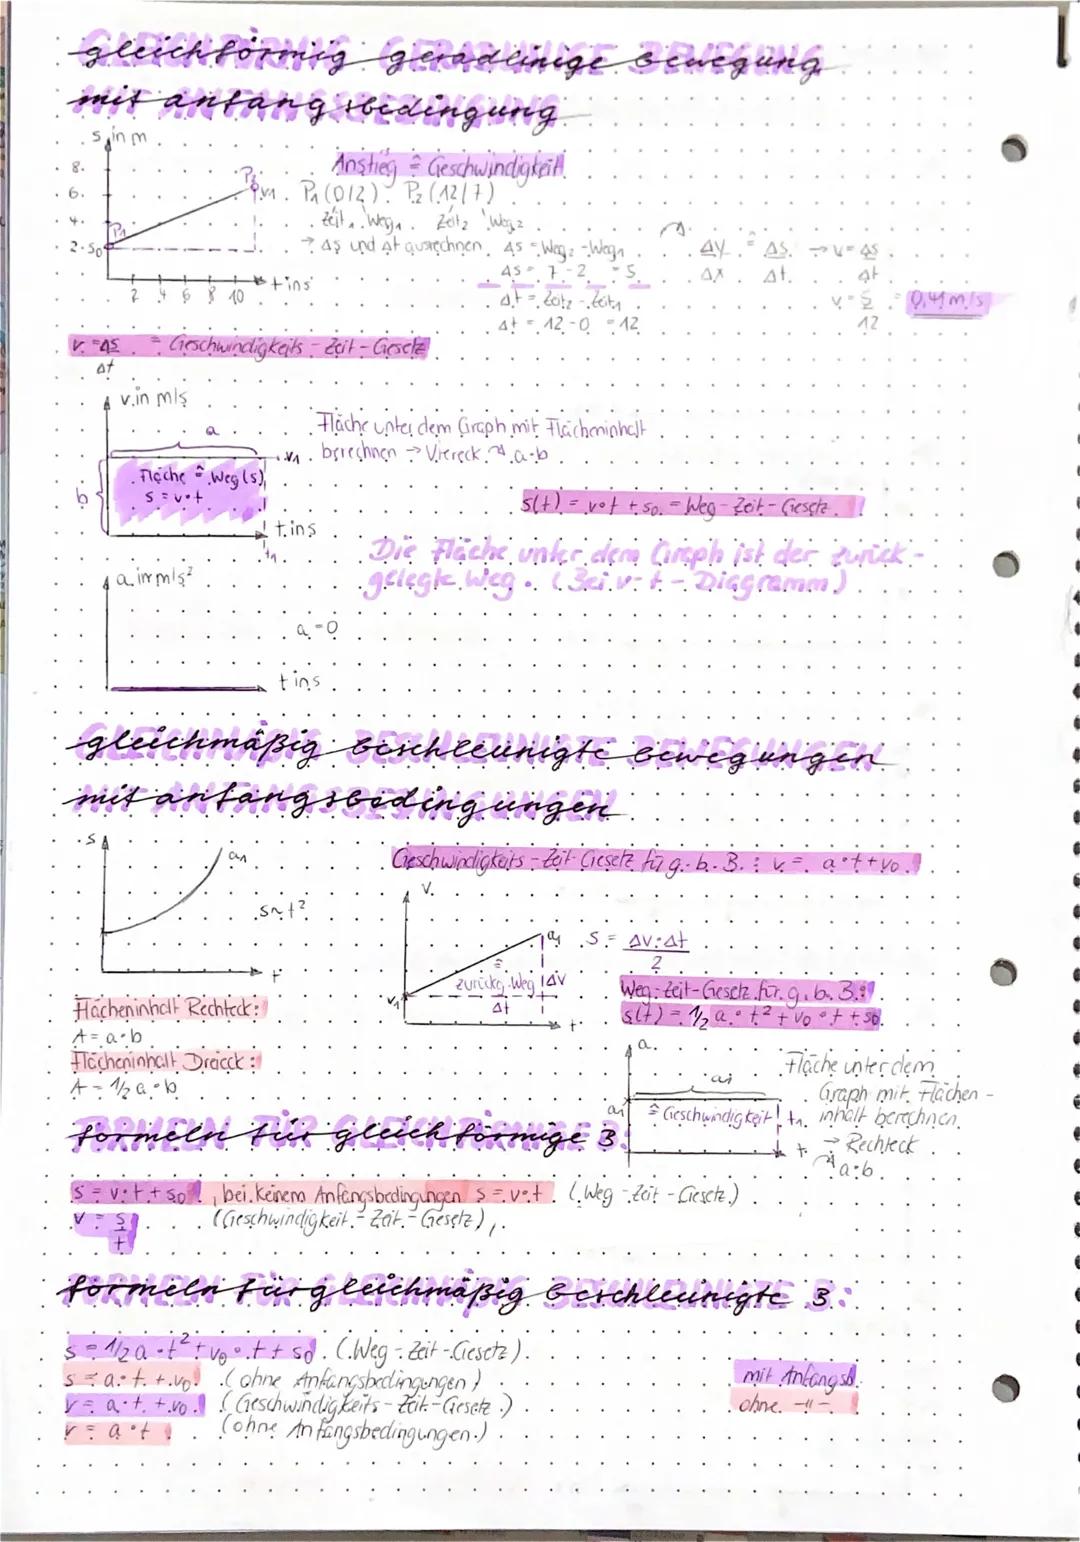 gleichförmig geradlinige Bewegung
mit anfangsbedingung
s in m
8
6
4
2 s₀
P₁
P₂
v₁
2 4 6 8 10
t in s
Anstieg ≙ Geschwindigkeit
P₁ (0|2) P₂ (12|7)
Zeit₁ Weg₁ Zeit₂ Weg₂
→ Δs und Δt ausrechnen Δs = Weg₂ - Weg₁
Δs = 7 - 2 = 5
Δt = Zeit₂ - Zeit₁
Δt = 12 - 0 = 12
Δy/Δx ≙ Δs/Δt → v = Δs/Δt
v = 5/12 = 0,41 m/s
v = Δs/Δt = Geschwindigkeits - Zeit - Gesetz
v in m/s
a
b
v₁
Fläche ≙ Weg (s)
s = v • t
t in s
t₁
Fläche unter dem Graph mit Flächeninhalt
berechnen → Viereck a·b
s(t) = v • t + s₀ = Weg - Zeit - Gesetz
Die Fläche unter dem Graph ist der zurück-
gelegte Weg. (Bei v-t - Diagramm)
a in m/s²
a = 0
t in s
gleichmäßig beschleunigte bewegungen
mit anfangsbedingungen
s
a₁
s ~ t²
t
Geschwindigkeits - Zeit - Gesetz für g. b. B. : v = a • t + v₀
v
a₁
v₁
≙
zurückg. Weg
Δv
Δt
t
s = Δv · Δt / 2
Weg - Zeit - Gesetz für g. b. B. :
s(t) = 1/2 a • t² + v₀ • t + s₀
Flächeninhalt Rechteck:
A = a • b
Flächeninhalt Dreieck:
A = 1/2 a • b
a
a₁
a₁
≙ Geschwindigkeit
t₁
t
Fläche unter dem
Graph mit Flächen -
inhalt berechnen
→ Rechteck
a·b
formeln für gleichförmige B:
s = v • t + s₀ , bei keinem Anfangsbedingungen s = v • t (Weg - Zeit - Gesetz)
v = s/t (Geschwindigkeit - Zeit - Gesetz),
formeln für gleichmäßig beschleunigte B:
s = 1/2 a • t² + v₀ • t + s₀ (Weg - Zeit - Gesetz)
s = a • t + v₀ (ohne Anfangsbedingungen)
v = a • t + v₀ (Geschwindigkeits - Zeit - Gesetz)
v = a • t (ohne Anfangsbedingungen)
mit Anfangsb.
ohne -"-